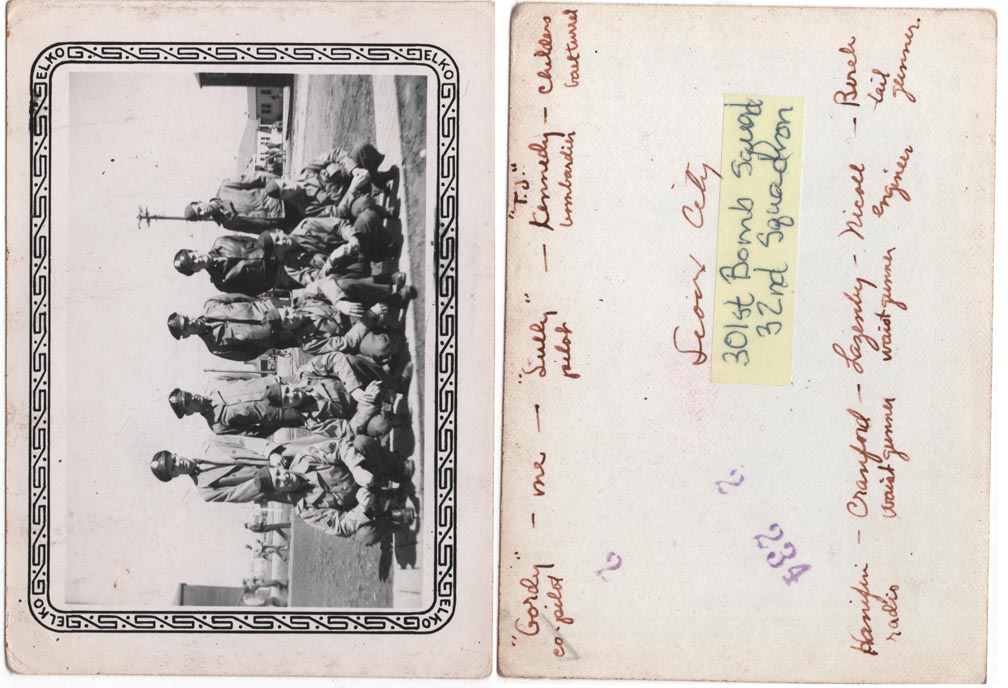 ELKO
ELKO
ELKO
ELKO
"Gordy" - me - "Sully" - "T.J." Kennedy - Childers
co-pilot pilot bombardier ball turret
Sioux City
301st Bomb Squad
32nd Squadron
2
2
342
Hanifin - Cranford - Lazenby - Nicoll - Berek
radio waist gunner waist gunner engineer tail gunner.